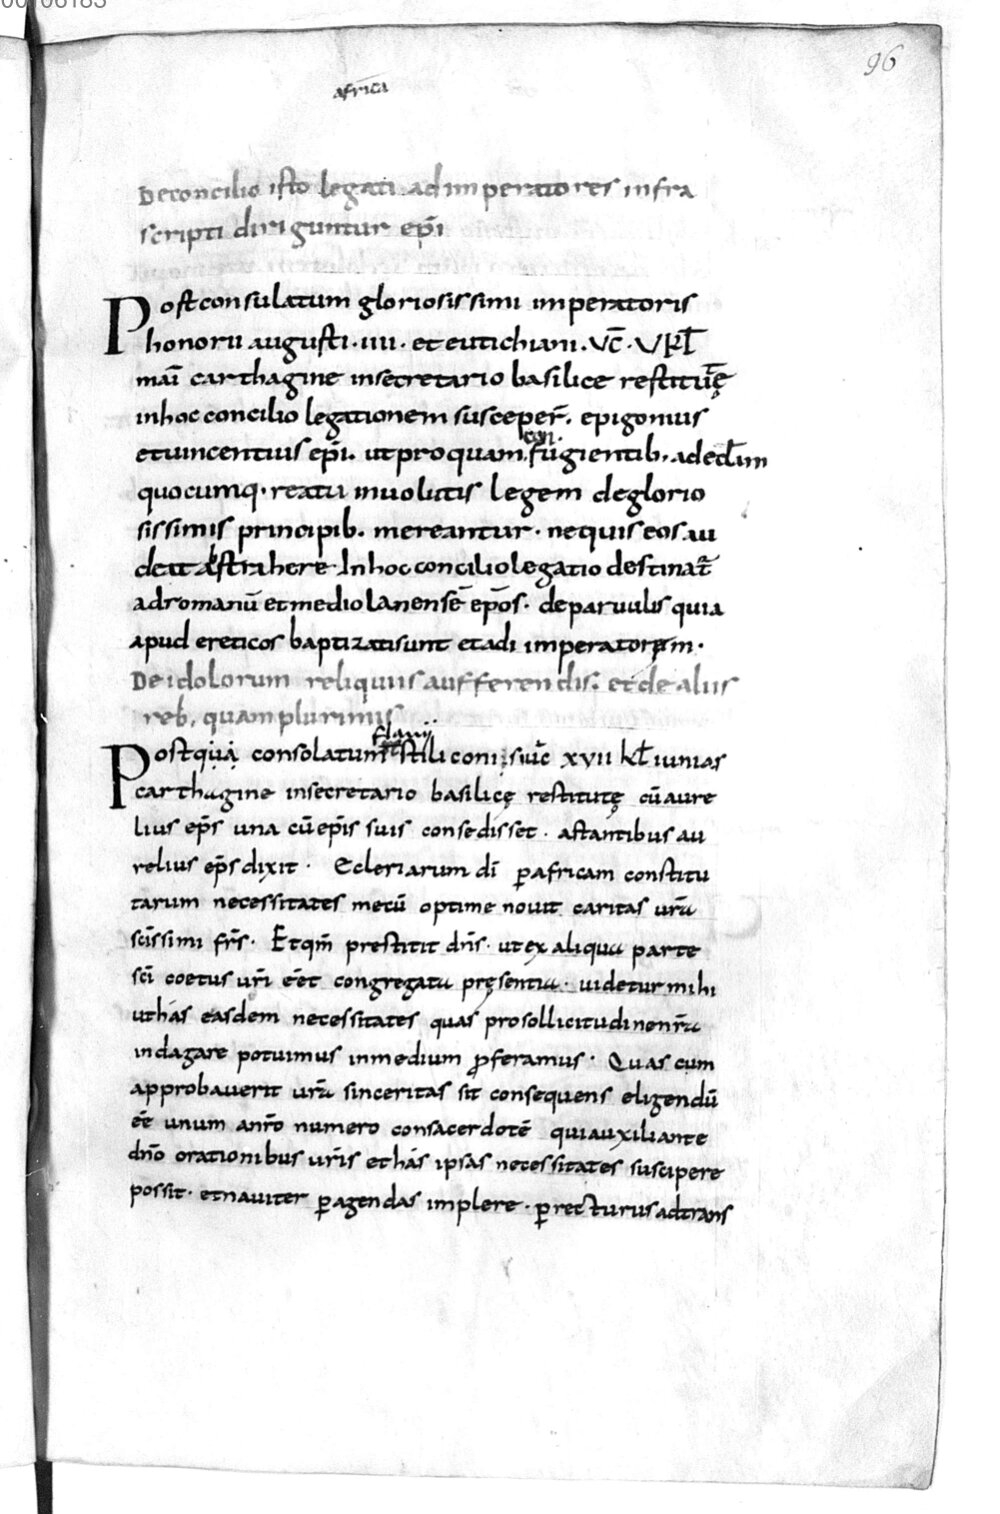 00106183
96
africa
Deconcilio isto legati adimperatores infra
scripti diriguntur ep̄i
Postconsulatum gloriosissimi imperatoris
honorii augusti·iiii· et eutichiani·vc̄·v kł
maī carthagine insecretario basilice restitūę
inhoc concilio legationem susceper̄. epigonius
etuincentius ep̄i. utproquam con. fugientib. adeccł̄im
quocumq· reatu inuolutis legem deglorio
sissimis principib. mereantur· nequis eos au
deat abstrahere· Inhoc concilio legatio destinat̄
adromanū etmediolanensē ep̄os· deparuulis quia
apud ereticos baptizatisunt etadi imperatorem·
De idolorum reliquiis aufferendis. et de aliis
reb. quamplurimis
Postquā consolatum flauii stiliconis uc̄ xvii kł iunias
carthagine insecretario basilicę restitutę cū aure
lius ep̄s una cū ep̄is suis consedisset· astantibus au
relius ep̄s dixit· Ecleriarum dī p̱africam constitu
tarum necessitates mecū optime nouit caritas ur̄a
sc̄issimi fr̄s· Etqm̄ prestitit dn̄s· ut ex aliqua parte
sc̄i coetus ur̄i eēt congregata pręsentia· uidetur mihi
uthás easdem necessitates quas prosollicitudinenr̄a
indagare potuimus inmedium ꝓferamus· Quas cum
approbauerit ur̄a sinceritas sit consequens eligendū
eē unum anr̄o numero consacerdotē quiauxiliante
dn̄o orationibus ur̄is ethás ipsas necessitates suscipere
possit· etnauiter p̱agendas implere· p̱recturus adtrans